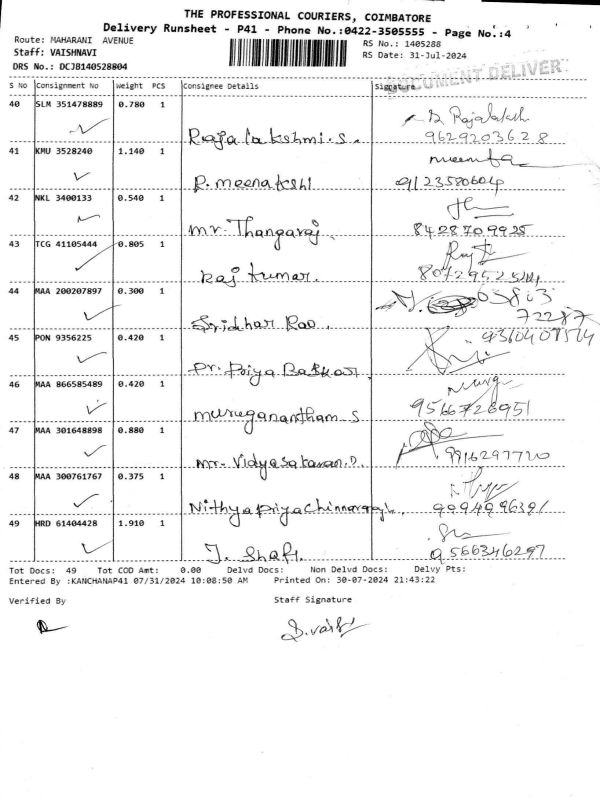 THE PROFESSIONAL COURIERS, COIMBATORE
Delivery Runsheet - P41 - Phone No.:0422-3505555 - Page No.:4
Route: MAHARANI AVENUE RS No.: 1405288
Staff: VAISHNAVI RS Date: 31-Jul-2024
DRS No.: DCJB140528804
DOCUMENT DELIVER
S No Consignment No Weight PCS Consignee Details Signature
40 SLM 351478889 0.780 1
Rajalakshmi.S. 9629203628
41 KMU 3528240 1.140 1 meena
R. meenakshi 9123580604
42 NKL 3400133 0.540 1
mr. Thangaraj. 8428709925
43 TCG 41105444 0.805 1
Raj kumar.
44 MAA 200207897 0.300 1
Sridhar Rao. 72287
45 PON 9356225 0.420 1
Dr. Priya Baskar.
46 MAA 866585489 0.420 1
muruganantham S 9566728951
47 MAA 301648898 0.880 1
mr. Vidyasakaran.D. 9916297720
48 MAA 300761767 0.375 1
49 HRD 61404428 1.910 1
J. Shafi. 9566346297
Tot Docs: 49 Tot COD Amt: 0.00 Delvd Docs: Non Delvd Docs: Delvy Pts:
Entered By :KANCHANAP41 07/31/2024 10:08:50 AM Printed On: 30-07-2024 21:43:22
Verified By Staff Signature